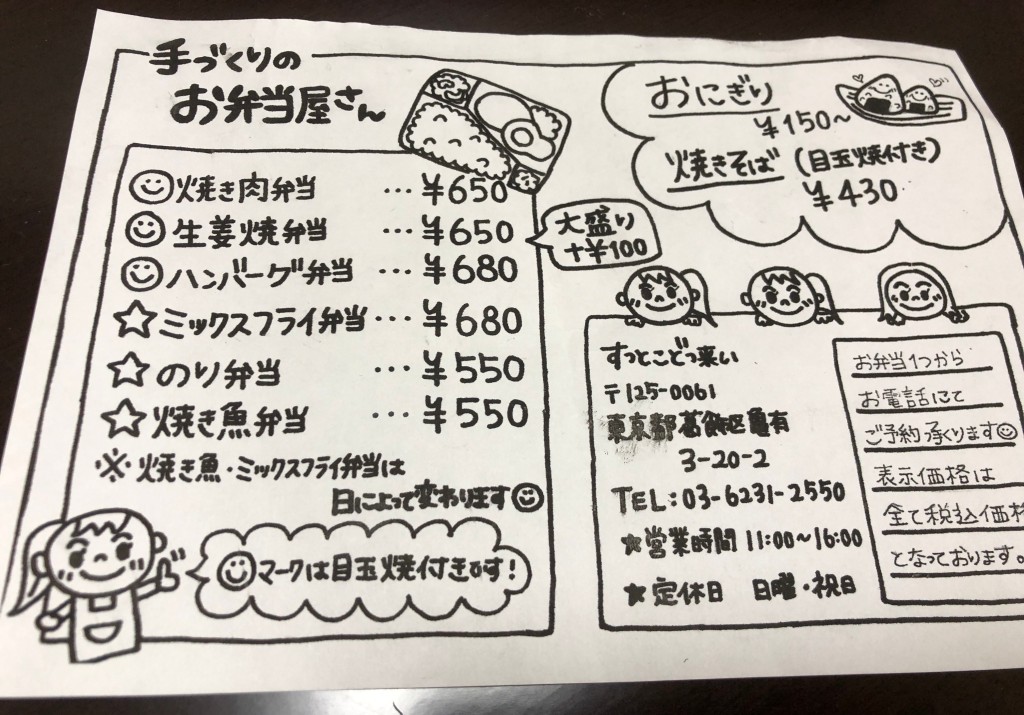 手づくりの
お弁当屋さん
焼き肉弁当 … ¥650
生姜焼弁当 … ¥650
ハンバーグ弁当 … ¥680
☆ミックスフライ弁当 … ¥680
☆のり弁当 … ¥550
☆焼き魚弁当 … ¥550
※焼き魚・ミックスフライ弁当は
日によって変わります
マークは目玉焼付きです!
大盛り
+¥100
おにぎり
¥150~
焼きそば(目玉焼付き)
¥430
すっとこどっ来い
〒125-0061
東京都葛飾区亀有
3-20-2
TEL:03-6231-2550
★営業時間 11:00~16:00
★定休日 日曜・祝日
お弁当1つから
お電話にて
ご予約承ります
表示価格は
全て税込価格
となっております。